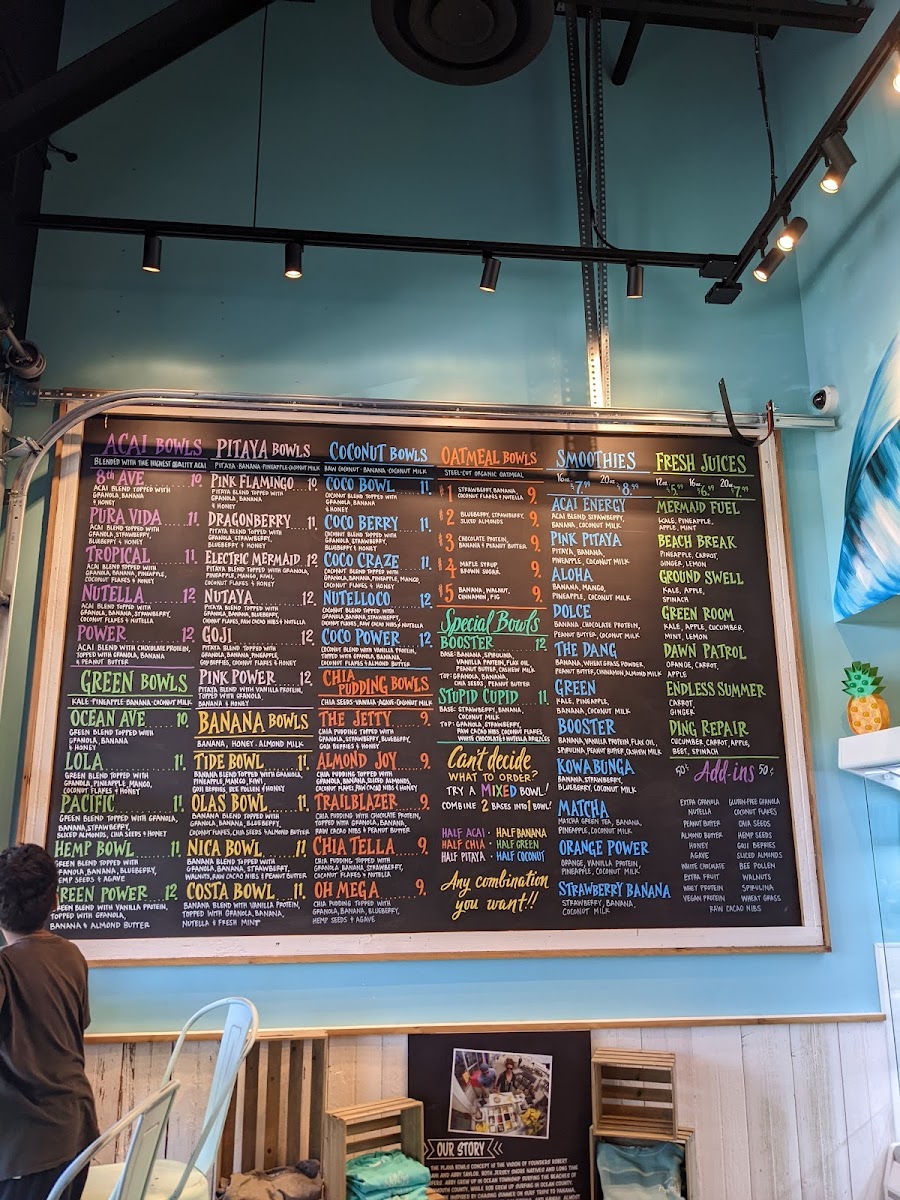 ACAI BOWLS
BLENDED WITH THE HIGHEST QUALITY ACAI
8th AVE 10.
ACAI BLEND TOPPED WITH
GRANOLA, BANANA
& HONEY
PURA VIDA 11.
ACAI BLEND TOPPED WITH
GRANOLA, STRAWBERRY,
BLUEBERRY & HONEY
TROPICAL 11.
ACAI BLEND TOPPED WITH
GRANOLA, BANANA, PINEAPPLE,
COCONUT FLAKES & HONEY
NUTELLA 12
ACAI BLEND TOPPED WITH
GRANOLA, BANANA, STRAWBERRY,
COCONUT FLAKES & NUTELLA
POWER 12
ACAI BLEND WITH CHOCOLATE PROTEIN,
TOPPED WITH GRANOLA, BANANA
& PEANUT BUTTER
GREEN BOWLS
KALE·PINEAPPLE·BANANA·COCONUT MILK
OCEAN AVE 10.
GREEN BLEND TOPPED WITH
GRANOLA, BANANA
& HONEY
LOLA 11.
GREEN BLEND TOPPED WITH
GRANOLA, PINEAPPLE, MANGO,
COCONUT FLAKES & HONEY
PACIFIC 11.
GREEN BLEND TOPPED WITH GRANOLA,
BANANA, STRAWBERRY,
SLICED ALMONDS, CHIA SEEDS & HONEY
HEMP BOWL 11.
GREEN BLEND TOPPED WITH
GRANOLA, BANANA, BLUEBERRY,
HEMP SEEDS & AGAVE
GREEN POWER 12
GREEN BLEND WITH VANILLA PROTEIN,
TOPPED WITH GRANOLA,
BANANA & ALMOND BUTTER
PITAYA BOWLS
PITAYA·BANANA·PINEAPPLE·COCONUT MILK
PINK FLAMINGO 10.
PITAYA BLEND TOPPED WITH
GRANOLA, BANANA
& HONEY
DRAGONBERRY 11.
PITAYA BLEND TOPPED WITH
GRANOLA, STRAWBERRY,
BLUEBERRY & HONEY
ELECTRIC MERMAID 12
PITAYA BLEND TOPPED WITH GRANOLA,
PINEAPPLE, MANGO, KIWI,
COCONUT FLAKES & HONEY
NUTAYA 12
PITAYA BLEND TOPPED WITH
GRANOLA, BANANA, STRAWBERRY,
COCONUT FLAKES, RAW CACAO NIBS & NUTELLA
GOJI 12
PITAYA BLEND TOPPED WITH
GRANOLA, BANANA, PINEAPPLE,
GOJI BERRIES, COCONUT FLAKES & HONEY
PINK POWER 12
PITAYA BLEND WITH VANILLA PROTEIN,
TOPPED WITH GRANOLA
BANANA & HONEY
BANANA BOWLS
BANANA, HONEY·ALMOND MILK
TIDE BOWL 11.
BANANA BLEND TOPPED WITH GRANOLA,
PINEAPPLE, MANGO, KIWI,
GOJI BERRIES, BEE POLLEN & HONEY
OLAS BOWL 11.
BANANA BLEND TOPPED WITH
GRANOLA, BANANA, BLUEBERRY,
COCONUT FLAKES, CHIA SEEDS & ALMOND BUTTER
NICA BOWL 11.
BANANA BLEND TOPPED WITH
GRANOLA, BANANA, STRAWBERRY,
WALNUTS, RAW CACAO NIBS & PEANUT BUTTER
COSTA BOWL 11.
BANANA BLEND WITH VANILLA PROTEIN,
TOPPED WITH GRANOLA, BANANA,
NUTELLA & FRESH MINT
COCONUT BOWLS
RAW COCONUT·BANANA·COCONUT MILK
COCO BOWL 11.
COCONUT BLEND TOPPED WITH
GRANOLA, BANANA
& HONEY
COCO BERRY 11.
COCONUT BLEND TOPPED WITH
GRANOLA, STRAWBERRY,
BLUEBERRY & HONEY
COCO CRAZE 11.
COCONUT BLEND TOPPED WITH
GRANOLA, BANANA, PINEAPPLE, MANGO,
COCONUT FLAKES & HONEY
NUTELLOCO 12
COCONUT BLEND TOPPED WITH
GRANOLA, BANANA, STRAWBERRY,
RAW CACAO NIBS & NUTELLA
COCO POWER 12
COCONUT BLEND WITH VANILLA PROTEIN,
TOPPED WITH GRANOLA, BANANA,
COCONUT FLAKES & ALMOND BUTTER
CHIA
PUDDING BOWLS
CHIA SEEDS·VANILLA·AGAVE·COCONUT MILK
THE JETTY 9.
CHIA PUDDING TOPPED WITH
GRANOLA, STRAWBERRY, BLUEBERRY,
GOJI BERRIES & HONEY
ALMOND JOY 9.
CHIA PUDDING TOPPED WITH
GRANOLA, BANANA, SLICED ALMONDS,
COCONUT FLAKES, RAW CACAO NIBS & HONEY
TRAILBLAZER 9.
CHIA PUDDING WITH CHOCOLATE PROTEIN,
TOPPED WITH GRANOLA, BANANA,
RAW CACAO NIBS & PEANUT BUTTER
CHIA TELLA 9.
CHIA PUDDING TOPPED WITH
GRANOLA, BANANA, STRAWBERRY,
COCONUT FLAKES & NUTELLA
OH MEGA 9.
CHIA PUDDING TOPPED WITH
GRANOLA, BANANA, BLUEBERRY,
HEMP SEEDS & AGAVE
OATMEAL BOWLS
STEEL-CUT ORGANIC OATMEAL
#1 STRAWBERRY, BANANA, 9.
COCONUT FLAKES & NUTELLA
#2 BLUEBERRY, STRAWBERRY, 9.
SLICED ALMONDS
#3 CHOCOLATE PROTEIN, 9.
BANANA & PEANUT BUTTER
#4 MAPLE SYRUP 9.
BROWN SUGAR
#5 BANANA, WALNUT, 9.
CINNAMON
Special Bowls
BOOSTER 12
BASE: BANANA, SPIRULINA,
VANILLA PROTEIN, FLAX OIL,
PEANUT BUTTER, CASHEW MILK
TOP: GRANOLA, BANANA,
CHIA SEEDS, PEANUT BUTTER
STUPID CUPID 11.
BASE: STRAWBERRY, BANANA,
COCONUT MILK
TOP: GRANOLA, STRAWBERRY,
RAW CACAO NIBS, COCONUT FLAKES,
WHITE CHOCOLATE & NUTELLA DRIZZLES
Can't decide
WHAT TO ORDER?
TRY A MIXED BOWL!
COMBINE 2 BASES INTO 1 BOWL!
HALF ACAI · HALF BANANA
HALF CHIA · HALF GREEN
HALF PITAYA · HALF COCONUT
Any combination
you want!!
SMOOTHIES
16oz $7.99 20oz $8.99
ACAI ENERGY
ACAI BLEND, STRAWBERRY,
BANANA, COCONUT MILK
PINK PITAYA
PITAYA, BANANA,
PINEAPPLE, COCONUT MILK
ALOHA
BANANA, MANGO,
PINEAPPLE, COCONUT MILK
DOLCE
BANANA, CHOCOLATE PROTEIN,
PEANUT BUTTER, COCONUT MILK
THE DANG
BANANA, WHEAT GRASS POWDER,
PEANUT BUTTER, CINNAMON, ALMOND MILK
GREEN
KALE, PINEAPPLE,
BANANA, COCONUT MILK
BOOSTER
BANANA, VANILLA PROTEIN, FLAX OIL,
SPIRULINA, PEANUT BUTTER, CASHEW MILK
KOWABUNGA
BANANA, STRAWBERRY,
BLUEBERRY, COCONUT MILK
MATCHA
MATCHA GREEN TEA, BANANA,
PINEAPPLE, COCONUT MILK
ORANGE POWER
ORANGE, VANILLA PROTEIN,
PINEAPPLE, COCONUT MILK
STRAWBERRY BANANA
STRAWBERRY, BANANA,
COCONUT MILK
FRESH JUICES
12oz $5.99 16oz $6.99 20oz $7.99
MERMAID FUEL
KALE, PINEAPPLE,
APPLE, MINT
BEACH BREAK
PINEAPPLE, CARROT,
GINGER, LEMON
GROUND SWELL
KALE, APPLE,
SPINACH
GREEN ROOM
KALE, APPLE, CUCUMBER,
MINT, LEMON
DAWN PATROL
ORANGE, CARROT,
APPLE
ENDLESS SUMMER
CARROT,
GINGER
DING REPAIR
CUCUMBER, CARROT, APPLE,
BEET, SPINACH
50¢ Add-ins 50¢
EXTRA GRANOLA
NUTELLA
PEANUT BUTTER
ALMOND BUTTER
HONEY
AGAVE
WHITE CHOCOLATE
EXTRA FRUIT
WHEY PROTEIN
VEGAN PROTEIN
GLUTEN-FREE GRANOLA
COCONUT FLAKES
CHIA SEEDS
HEMP SEEDS
GOJI BERRIES
SLICED ALMONDS
BEE POLLEN
WALNUTS
SPIRULINA
WHEAT GRASS
RAW CACAO NIBS
OUR STORY